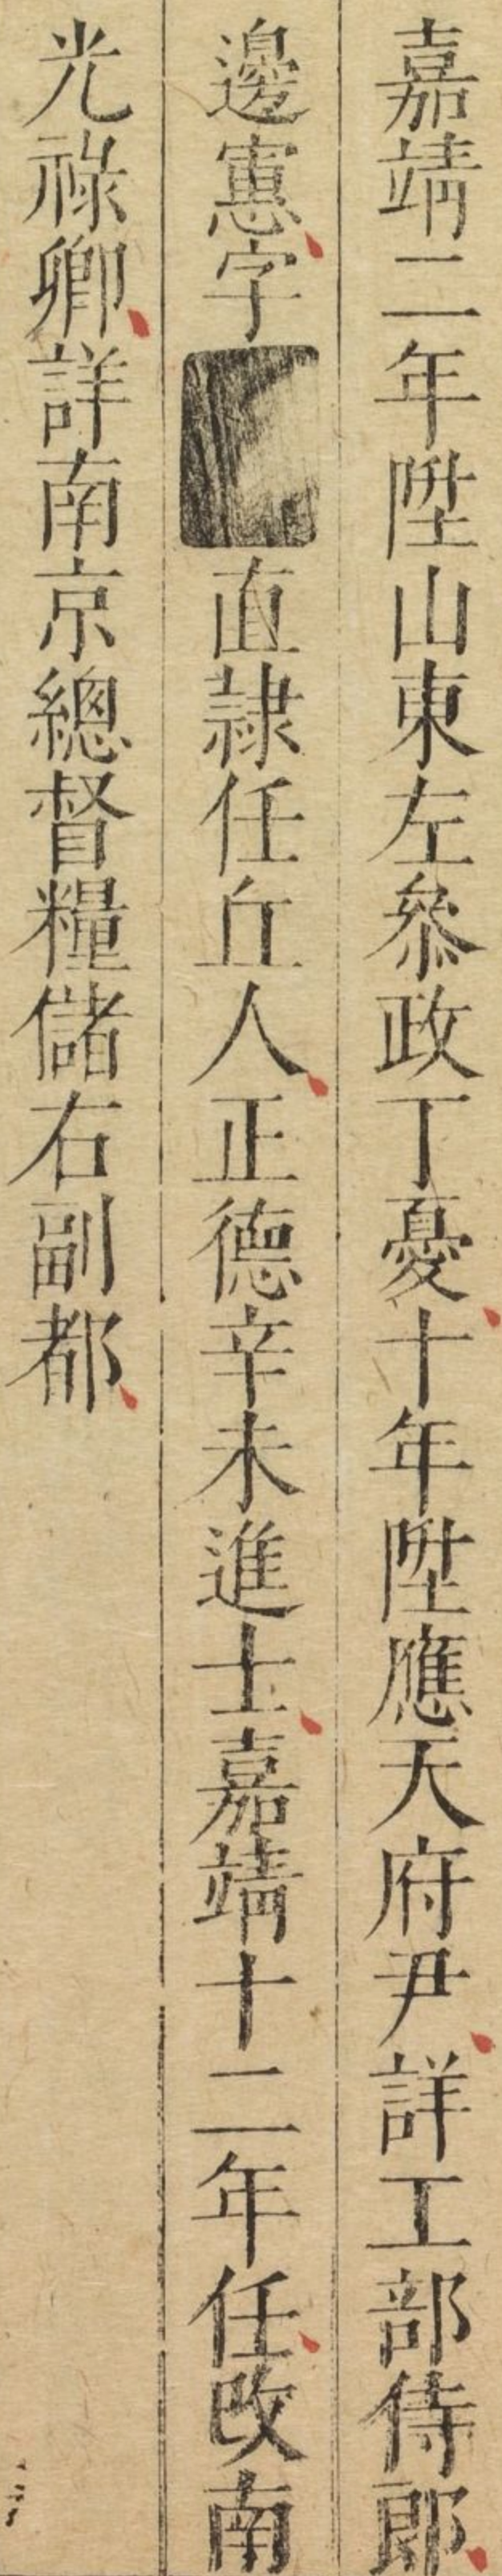 嘉靖二年陞山東左叅政丁憂十年陞應天府尹詳工部侍郎
邊憲字直隸任丘人正德辛未進士嘉靖十二年任改南
光祿卿詳南京總督糧儲右副都